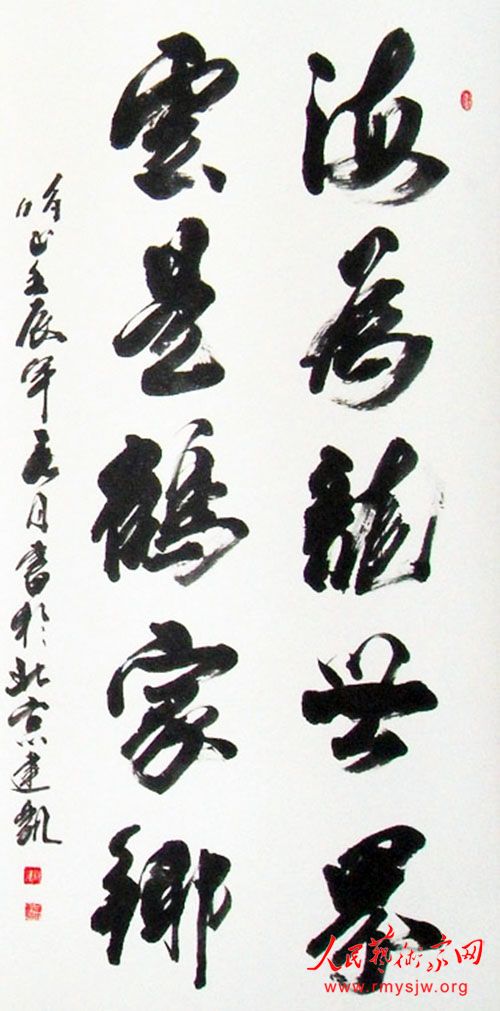 海为龙世界
雲是鹤家鄉
時在壬辰年春月書於北京建凱
人民藝術家网
www.rmysjw.org